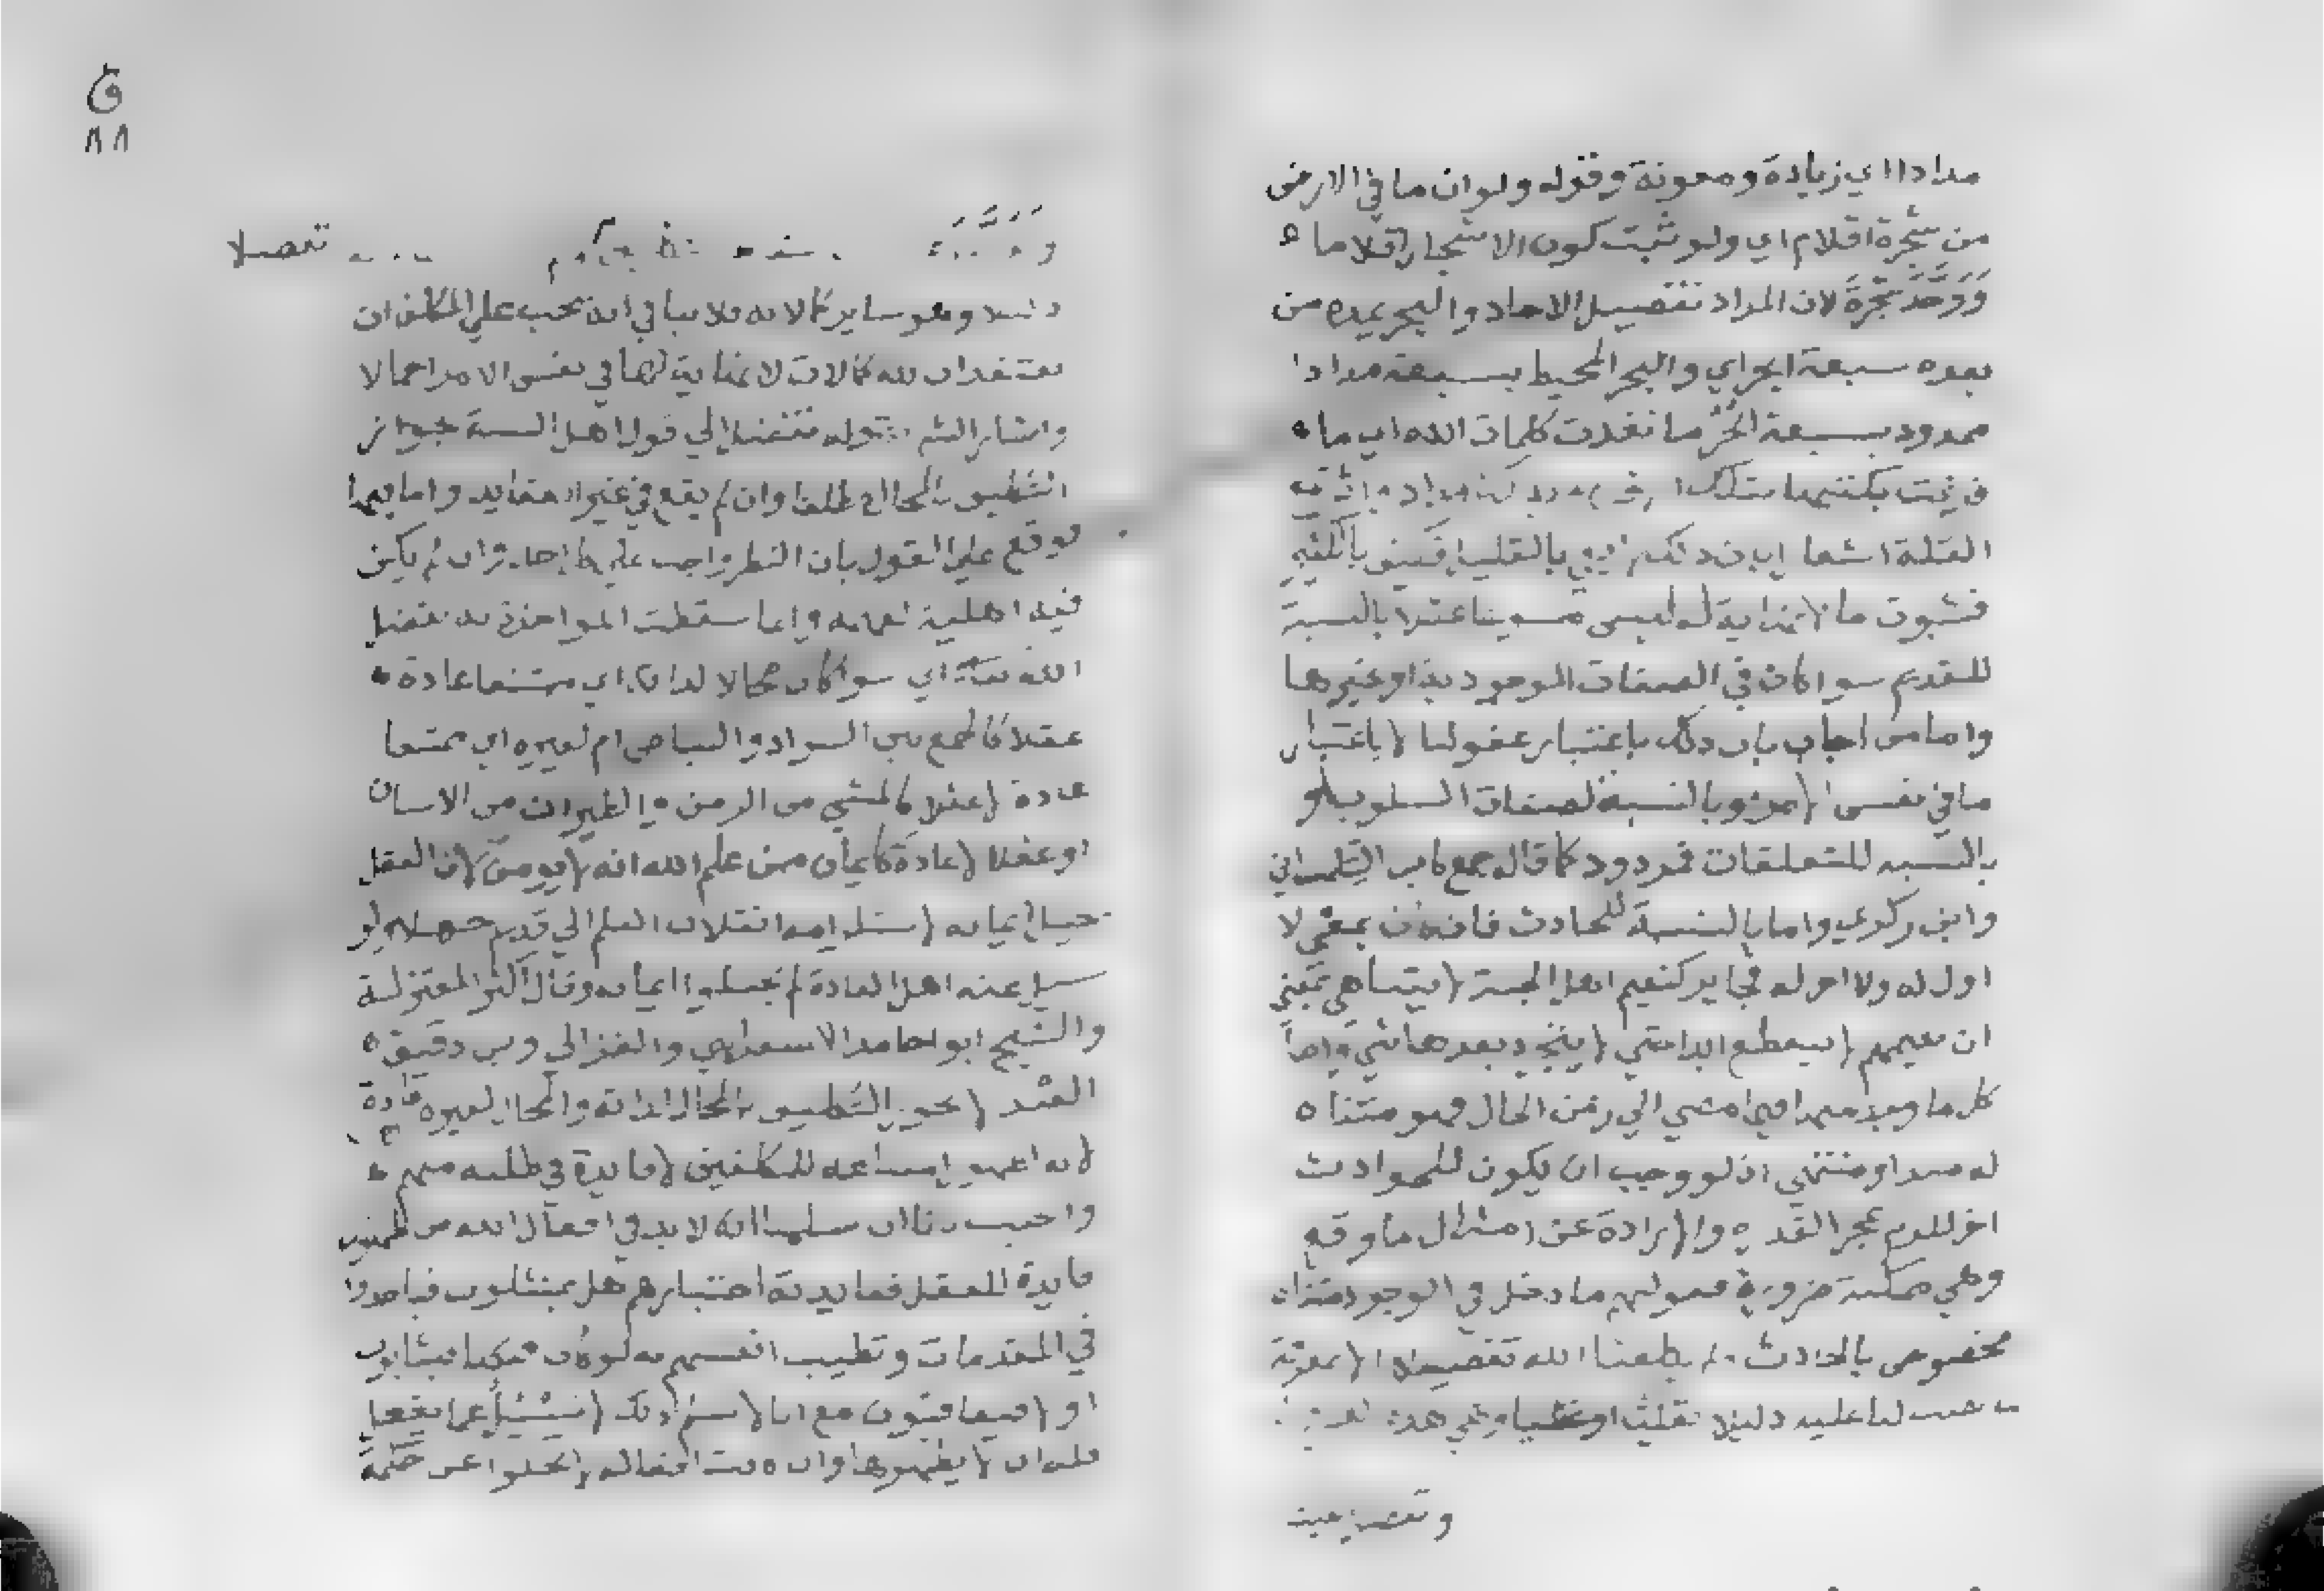 مدادا اي زيادة ومعونة وقوله ولو ان ما في الارض
من شجرة اقلام اي ولو ثبت كون الاشجار اقلاما
وَوَحَّدَ شَجَرَةً لان المراد تفصيل الاحاد والبحر يمده من
بعده سبعة ابحر اي والبحر المحيط بسبعة مدادا
ممدود بسبعة ابحر ما نفدت كلمات الله اي ما
فنيت بكتبها بتلك
القلة اشعا بالقليل
فثبوت ما لا نهاية له ليس ممتنعا عقلا بالنسبة
للقديم سوا كان في الصفات الموجودية او غيرها
واما من اجاب بان ذلك باعتبار عقولنا لا باعتبار
ما في نفس الامر وبالنسبة لصفات السلوب او
بالنسبه للتعلقات فمردود كما قاله جمع كابن التلمساني
وابن زكري واما بالنسبة للحادث فان كان بمعني لا
اول له ولا اخر له فجايز كنعيم اهل الجنة لا يتناهي بمعني
ان نعيمهم لا ينقطع ابدا متي لا يتجدد بعدها شي واما
كل ما وجد منه فيما مضي الي زمن الحال فهو متناه
له مبدا ومنتهي اذ لو وجب ان يكون للحوادث
اخر للزم عجز القدرة والارادة عن امثال ما وقع
وهي ممكنة ضرورة فقولهم ما دخل في الوجود متناه
مخصوص بالحادث ولم يطعنا الله تفصيلا الا بمعرفة
ما نصب لنا عليه دليلا عقليا او نقليا وهي هذه
وتفضل حيث
ق
٨٨
تفصلا
دليلا وهو ساير كمالاته فلا ينافي انه يجب علي المكلف ان
يعتقد ان لله كمالات لا نهاية لها في نفس الامر اجمالا
واشار الشم بقوله تفضلا الي قول اهل السنة بجواز
التكليف بالمحال مطلقا وان لم يقع في غير العقايد واما فيها
فوقع علي القول بان النظر واجب علي كل احد وان لم يكن
فيه اهلية لفهمه وانما سقطت المواخذة به بفضل
الله اي سوا كان محالا لذاته اي ممتنعا عادة
عقلا كالجمع بين السواد والبياض ام لغيره اي ممتنعا
عادة لا عقلا كالمشي من الزمن والطيران من الانسان
او عقلا لا عادة كايمان من علم الله انه لا يومن لان العقل
يحيل ايمانه لاستلزامه انقلاب العلم القديم جهلا ولو
سيل عنه اهل العادة لم يحيلوا ايمانه وقال اكثر المعتزلة
والشيخ ابو احامد الاسفرايني والغزالي وبن دقيق
العيد لا يجوز التكليف بالمحال لذاته والمحال لغيره عادة
لانه لظهور امتناعه للمكلفين لا فايدة في طلبه منهم
واجيب بانا ان سلمنا انه لا بد في افعال الله من ظهور
فايدة للعقل ففايدته اختبارهم هل يمتثلون فياخذوا
في المقدمات وتطيب انفسهم به لو كان ممكنا فيثابون
او لا فيعاقبون مع انا لا نسلم ذلك لا يُسْئَل عما يفعل
فله ان لا يظهرها وان كانت افعاله لا تخلوا عن حكمة